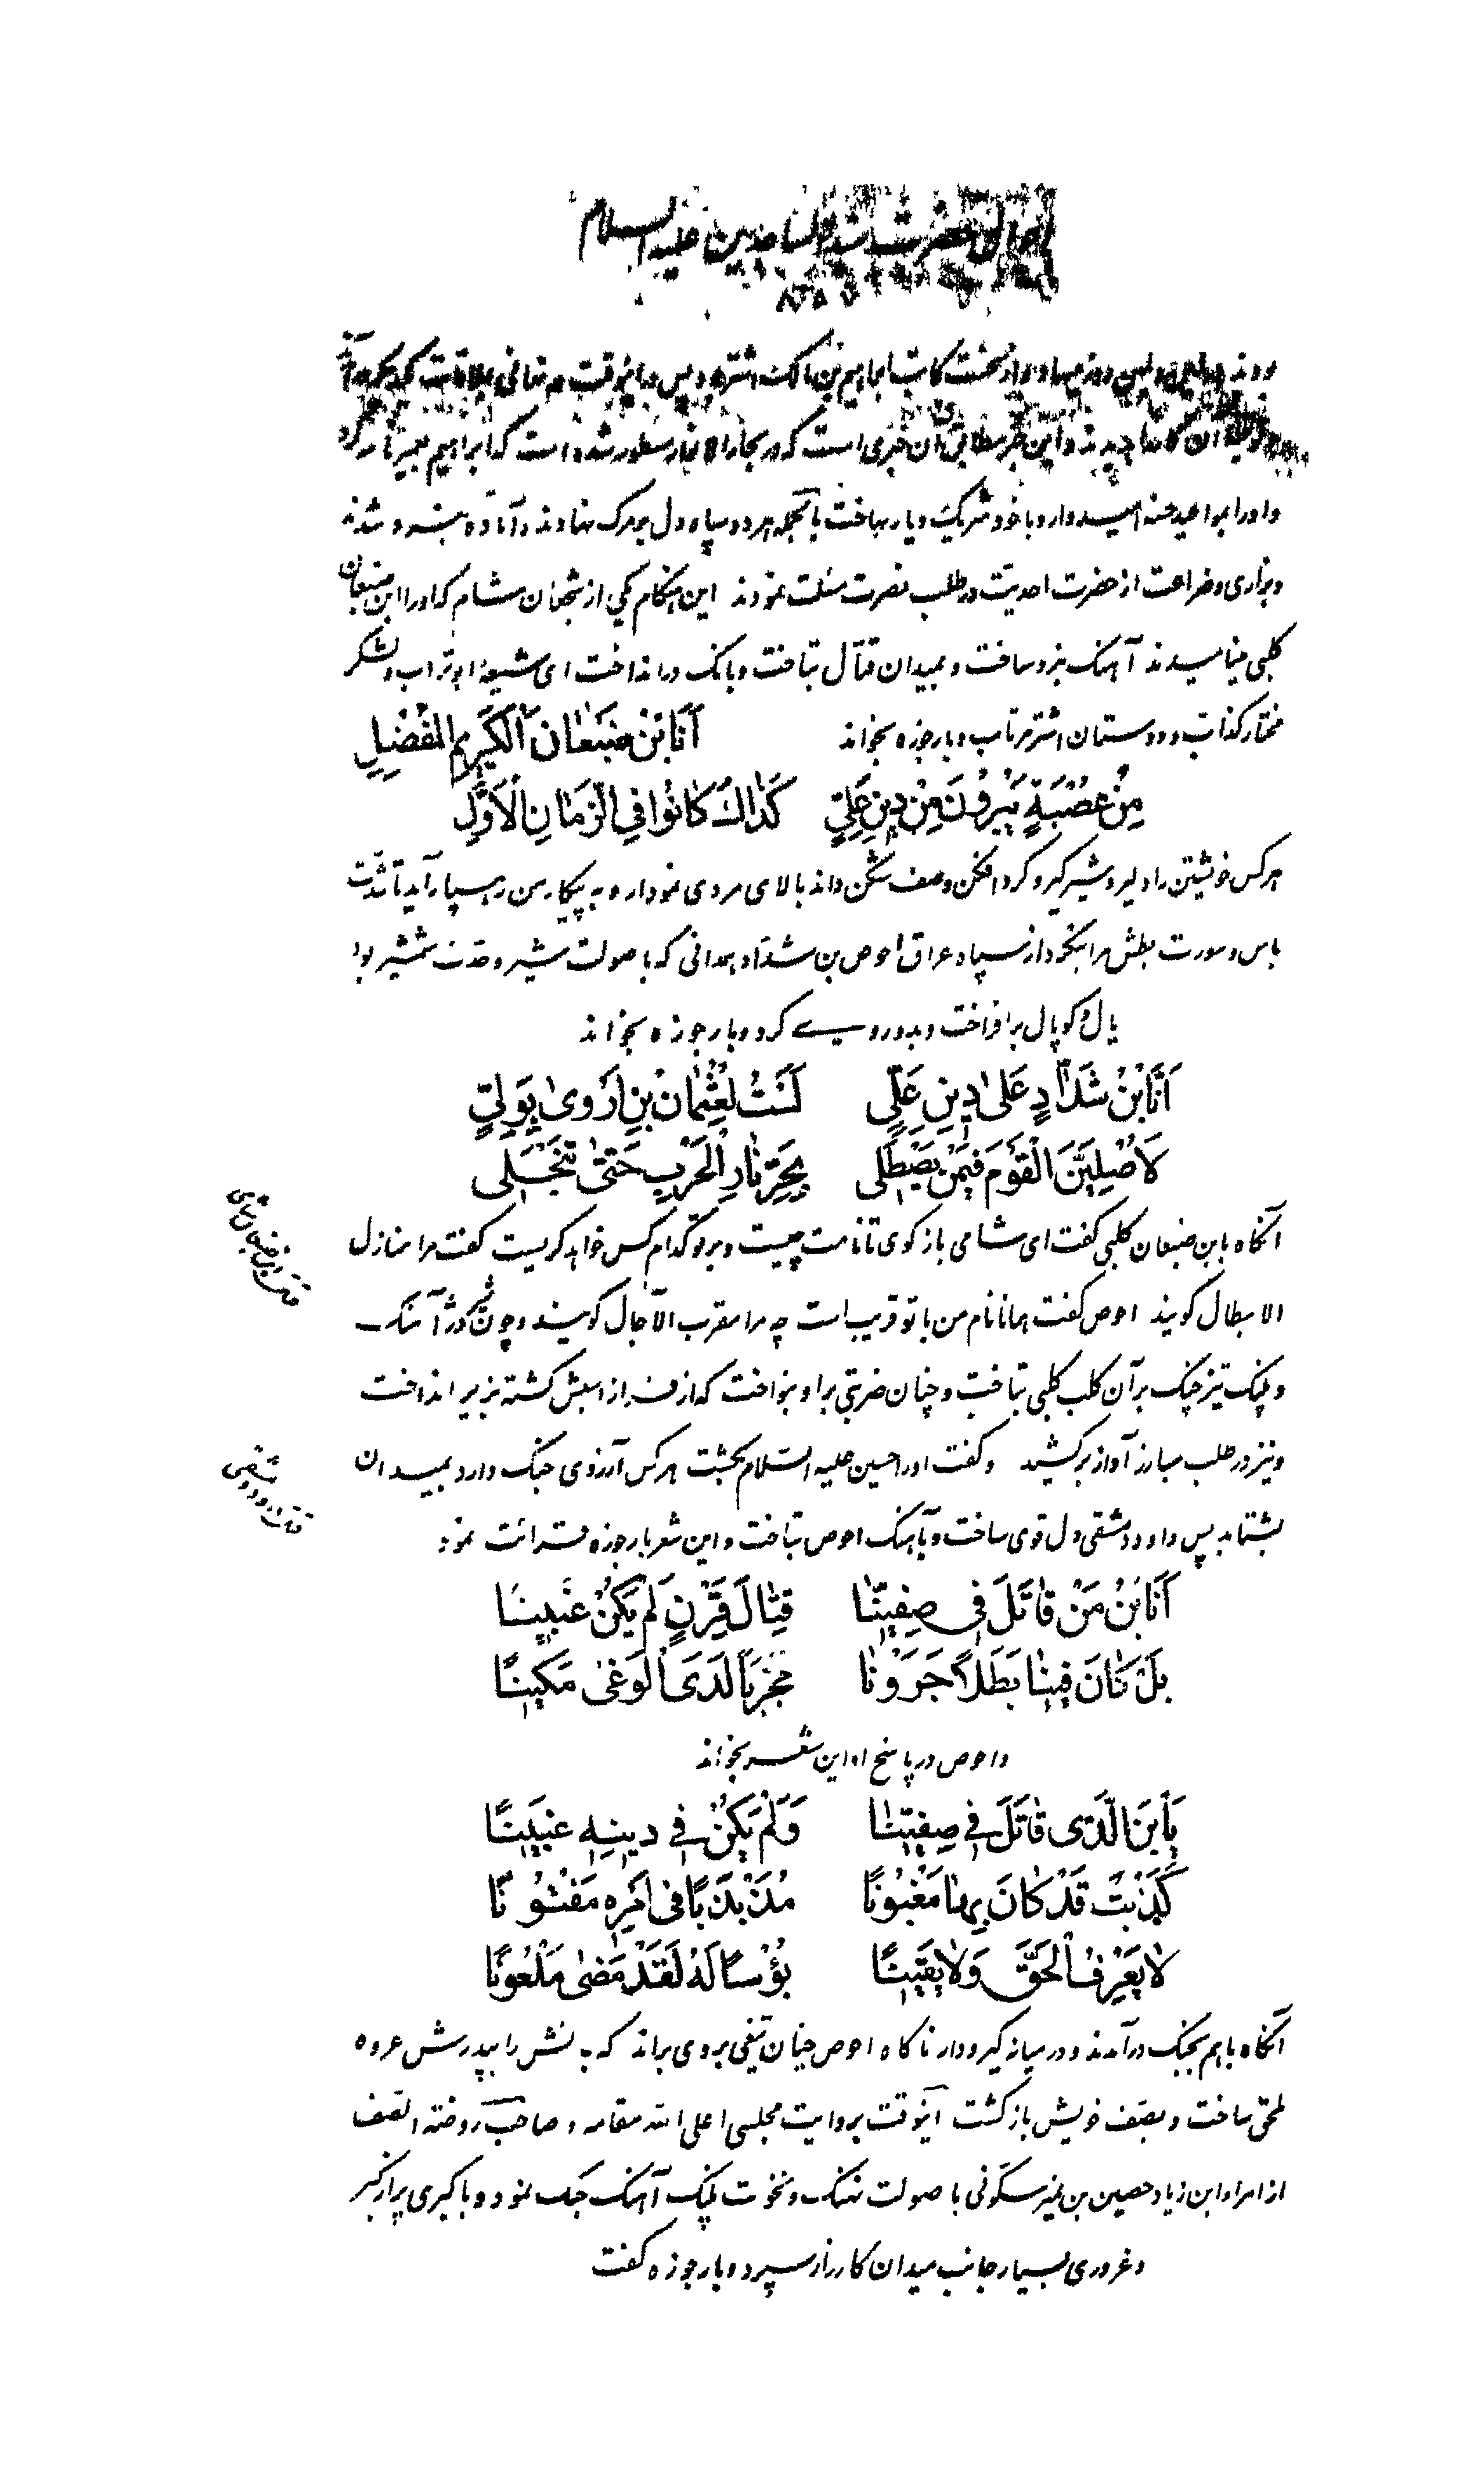 احوال حضرت سید الساجدین علیه السلام
۸۳۵
کاتب ابراهیم بن مالک اشتر
و این خبر مطابق آن خبری است که در بحار الانوار مسطور شده است که ابراهیم عمیر را
و او را بمواعید حسنه امیدوار و با خود شریک و یار بساخت بالجمله هر دو سپاه دل بر مرک نهادند و آماده نبرد شدند
و بزاری و ضراعت از حضرت احدیت در طلب نصرت مسئلت نمودند این هنکام یکی از شجعان شام که او را ابن ضبعان
کلبی مینامیدند آهنک نبرد ساخت و بمیدان قتال بتاخت و بانک در انداخت ای شیعۀ ابو تراب و لشکر
مختار کذاب و دوستان اشتر مرتاب و بارجوزه بخواند اَنَا بْنُ ضَبْعانَ الْکَریمِ الْمُفْضِلِ
مِنْ عُصْبَةٍ یَبْرَوْنَ مِنْ دینِ عَلیٍّ کَذاکَ کانُوا فِی الزَّمانِ الْاَوَّلِ
هر کس خویشتن را دلیر و شیر کیر و کرد افکن و صف شکن داند بالای مردی نمودار و به پیکار من رهسپار آید تا شدت
باس و سورت بطش مرا بنکرد از سپاه عراق احوص بن شداد همدانی که با صولت شیر و حدت شمشیر بود
یال و کوپال برافراخت و بدو روی کرد و بارجوزه بخواند
اَنَا بْنُ شَدّادٍ عَلی دینِ عَلیٍّ لَسْتُ لِعُثْمانَ بْنِ اَرْوی بِوَلیٍّ
لَاُصْلِیَنَّ الْقَوْمَ فیمَنْ یَصْطَلی بِحَرِّ نارِ الْحَرْبِ حَتّی تَنْجَلی
آنکاه بابن ضبعان کلبی کفت ای شامی باز کوی تا نامت چیست و بر تو کدام کس خواهد کریست کفت مرا منازل
قتل ابن ضبعان شامی
الابطال کویند احوص کفت همانا نام من با تو قریب است چه مرا مقرب الآجال کویند و چون شیر دژ آهنک
و پلنک تیز چنک بر آن کلب کلبی بتاخت و چنان ضربتی بر او بنواخت که از فراز اسبش کشته بزیر انداخت
و نیز در طلب مبارز آواز بر کشید و کفت او را حسین علیه السلام بکشت هر کس آرزوی جنک دارد بمیدان
قتل داود دمشقی
بشتابد پس داود دمشقی دل قوی ساخت و بآهنک احوص بتاخت و این شعر بارجوزه قرائت نمود
اَنَا بْنُ مَنْ قاتَلَ فی صِفّینا قِتالَ قِرْنٍ لَمْ یَکُنْ غَبینا
بَلْ کانَ فینا بَطَلاً جَرَوْنا مُجَرَّباً لَدَی الْوَغی مَکیناً
و احوص در پاسخ او این شعر بخواند
یَا بْنَ الَّذی قاتَلَ فی صِفّینا وَلَمْ یَکُنْ فی دینِهِ غَبیناً
کَذَبْتَ قَدْ کانَ بِها مَغْبُوناً مُذَبْذَباً فی اَمْرِهِ مَفْتُوناً
لا یَعْرِفُ الْحَقَّ وَلا یَقیناً بُؤْساً لَهُ لَقَدْ مَضی مَلْعُوناً
آنکاه با هم بجنک درآمدند و در میانه کیر و دار ناکاه احوص چنان تیغی بر وی براند که بدنش را بپدرش عروه
ملحق ساخت و بصف خویش باز کشت اینوقت بروایت مجلسی اعلی الله مقامه و صاحب روضة الصفا
از امراء ابن زیاد حصین بن نمیر سکونی با صولت نهنک و نخوت پلنک آهنک جنک نمود و با کبری پر از کبر
و غروری بسیار جانب میدان کارزار سپرد و بارجوزه کفت